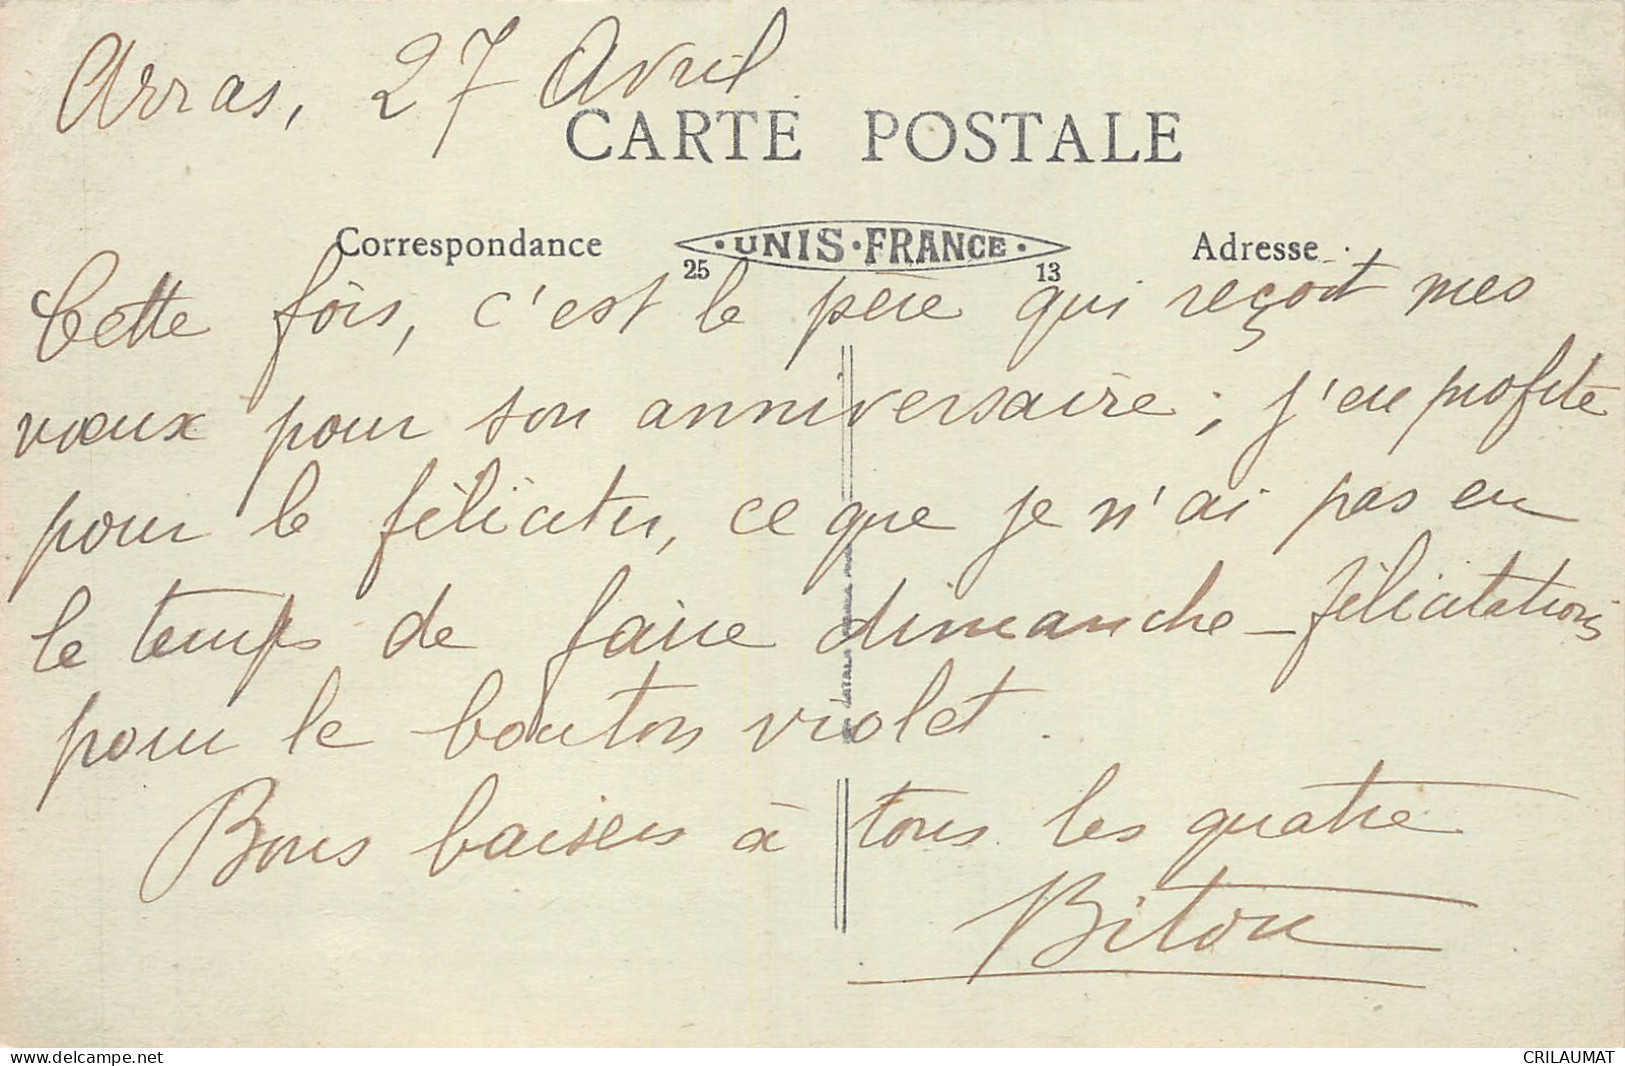 Arras, 27 Avril
CARTE POSTALE
Correspondance
UNIS·FRANCE
25 13
Adresse
Cette fois, c'est le père qui reçoit mes
vœux pour son anniversaire ; j'en profite
pour le féliciter, ce que je n'ai pas eu
le temps de faire dimanche – félicitations
pour le bouton violet.
Bons baisers à tous les quatre
Biton
www.delcampe.net
CRILAUMAT